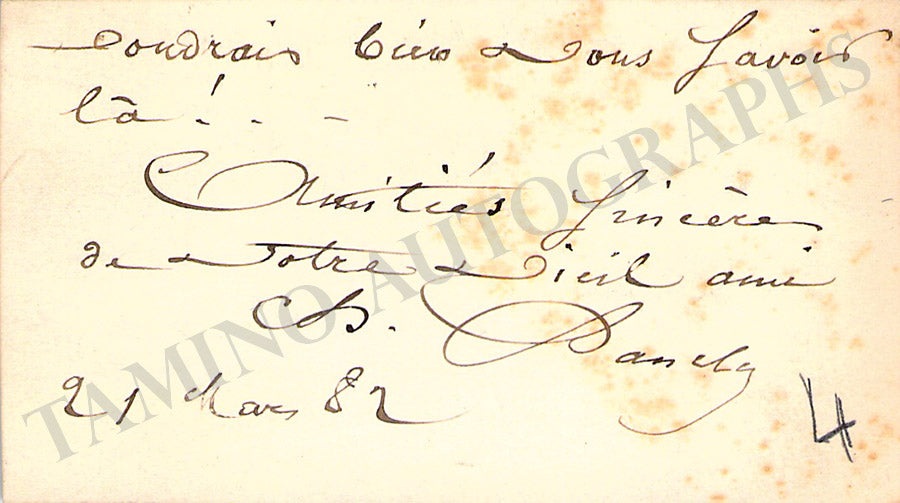 voudrais bien vous savoir
là! . . -
Amitiés sincères
de votre vieil ami
Ch. Dancla
21 Mars 82
4
TAMINO AUTOGRAPHS